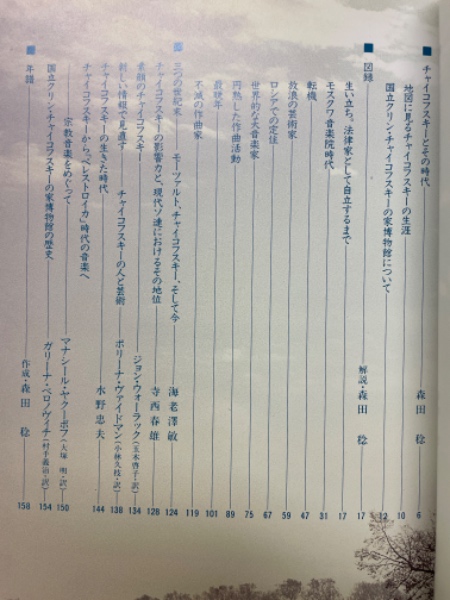 ■ チャイコフスキーとその時代 森田 稔 6
地図に見るチャイコフスキーの生涯 10
国立クリン・チャイコフスキーの家博物館について 12
■ 図録 解説・森田 稔 17
生い立ち。法律家として自立するまで 17
モスクワ音楽院時代 31
転機 47
放浪の芸術家 59
ロシアでの定住 67
世界的な大音楽家 75
円熟した作曲活動 89
最晩年 101
不滅の作曲家 119
三つの世紀末 モーツァルト、チャイコフスキー、そして今 海老澤敏 124
チャイコフスキーの影響力と、現代ソ連におけるその地位 寺西春雄 128
素顔のチャイコフスキー ジョン・ウォーラック(玉木啓子・訳) 134
新しい情報で見直す チャイコフスキーの人と芸術 ポリーナ・ヴァイドマン(小林久枝・訳) 138
チャイコフスキーの生きた時代 水野忠夫 144
チャイコフスキーから、「ペレストロイカ」時代の音楽へ
宗教音楽をめぐって マナシール・ヤクーボフ(大塚 明・訳) 150
国立クリン・チャイコフスキーの家博物館の歴史 ガリーナ・ベロノヴィチ(村手義治・訳) 154
■ 年譜 作成・森田 稔 158